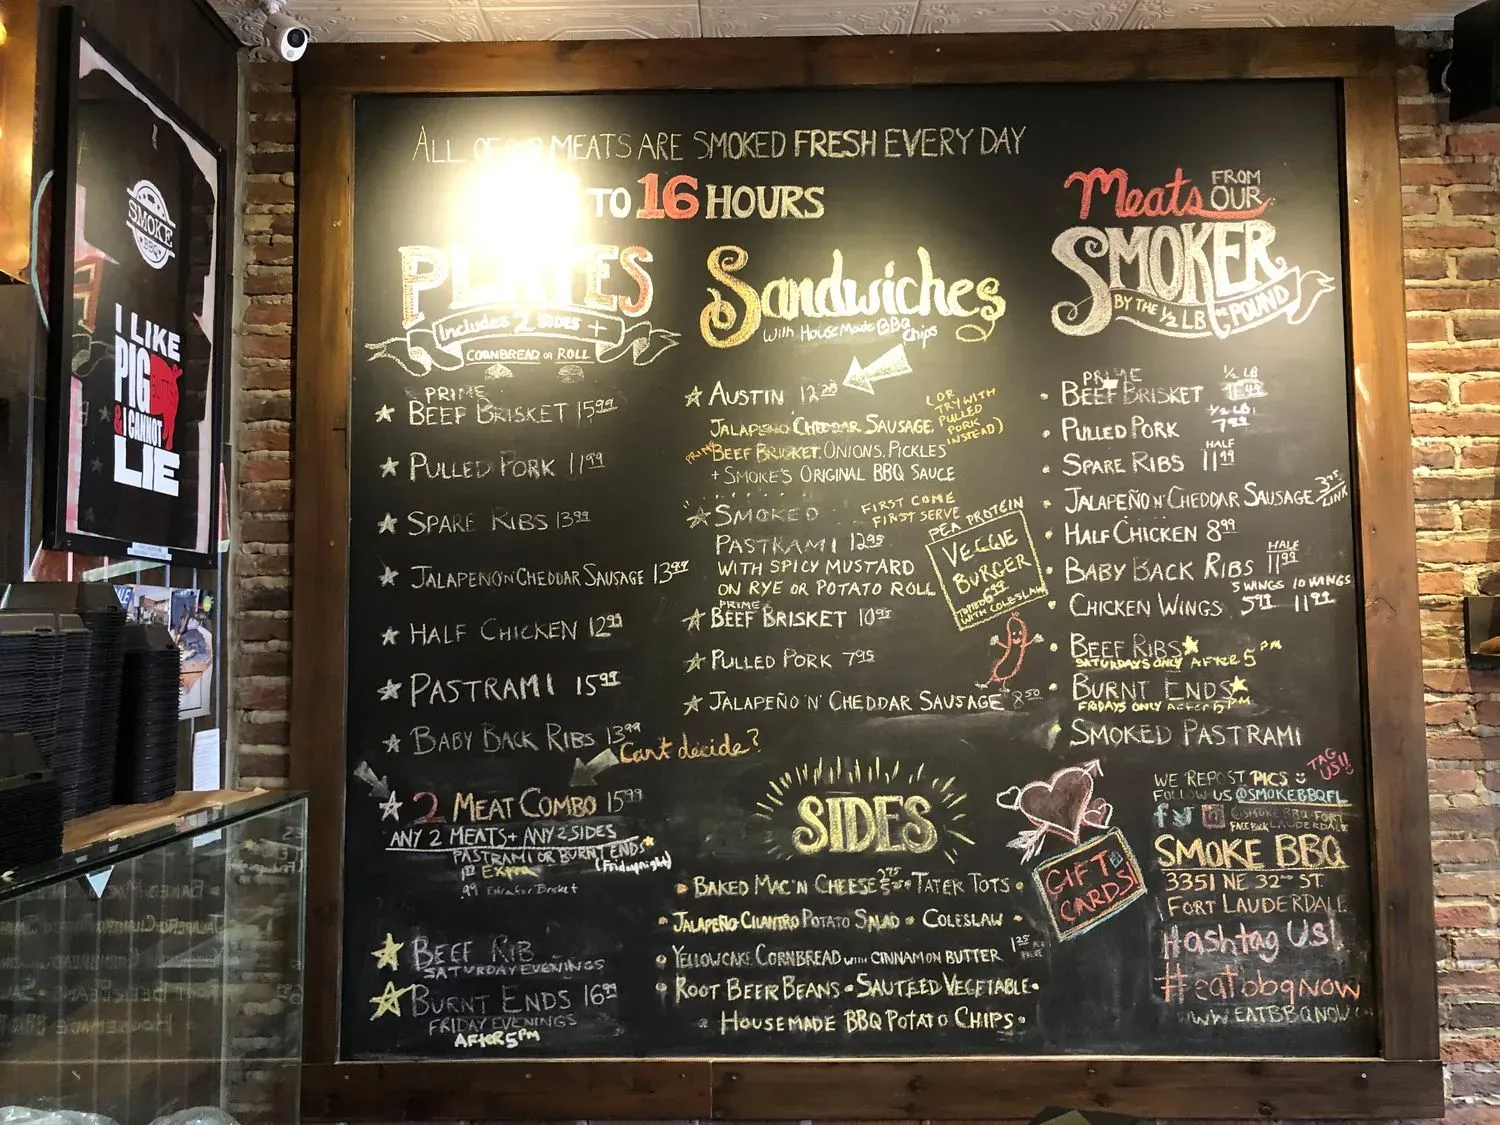 SMOKE
BBQ
I LIKE
PIG
BUTTS
& I CANNOT
LIE
ALL OF OUR MEATS ARE SMOKED FRESH EVERY DAY
TO 16 HOURS
PLATES
Includes 2 SIDES +
CORNBREAD OR ROLL
PRIME
BEEF BRISKET 15.99
PULLED PORK 11.99
SPARE RIBS 13.99
JALAPEÑO'N'CHEDDAR SAUSAGE 13.99
HALF CHICKEN 12.99
PASTRAMI 15.99
BABY BACK RIBS 13.99
Can't decide?
2 MEAT COMBO 15.99
ANY 2 MEATS + ANY 2 SIDES
PASTRAMI OR BURNT ENDS
(Friday night)
Extra
.99 Extra for Brisket
BEEF RIB
SATURDAY EVENINGS
BURNT ENDS 16.99
FRIDAY EVENINGS
AFTER 5PM
Sandwiches
with House Made BBQ
Chips
AUSTIN 12.25
JALAPEÑO CHEDDAR SAUSAGE,
(OR
TRY WITH
PULLED
PORK
INSTEAD)
PRIME BEEF BRISKET, ONIONS, PICKLES
+ SMOKE'S ORIGINAL BBQ SAUCE
SMOKED
PASTRAMI 12.95
WITH SPICY MUSTARD
ON RYE OR POTATO ROLL
FIRST COME
FIRST SERVE
PEA PROTEIN
VEGGIE
BURGER
TOPPED
WITH COLESLAW
PRIME
BEEF BRISKET 10.95
PULLED PORK 7.95
JALAPEÑO 'N' CHEDDAR SAUSAGE 8.50
SIDES
BAKED MAC'N CHEESE • TATER TOTS
JALAPEÑO-CILANTRO POTATO SALAD • COLESLAW
YELLOWCAKE CORNBREAD WITH CINNAMON BUTTER 1.25
ROOT BEER BEANS • SAUTEED VEGETABLE
HOUSEMADE BBQ POTATO CHIPS
Meats FROM
OUR
SMOKER
BY THE 1/2 LB OR POUND
PRIME
BEEF BRISKET 1/2 LB
PULLED PORK 1/2 LB. 7.99
SPARE RIBS HALF 11.99
JALAPEÑO N' CHEDDAR SAUSAGE 3.95/LINK
HALF CHICKEN 8.99
BABY BACK RIBS HALF 11.99
CHICKEN WINGS 5 WINGS 5.99 10 WINGS 11.99
BEEF RIBS
SATURDAYS ONLY AFTER 5 PM
BURNT ENDS
FRIDAYS ONLY AFTER 5PM
SMOKED PASTRAMI
GIFT
CARDS!
TAG
US!!
WE REPOST PICS
FOLLOW US @SMOKEBBQFL
@SMOKE BBQ-FORT
FACEBOOK LAUDERDALE
SMOKE BBQ
3351 NE 32ND ST.
FORT LAUDERDALE
Hashtag Us!
#eatbbqNOW
WWW.EATBBQNOW.